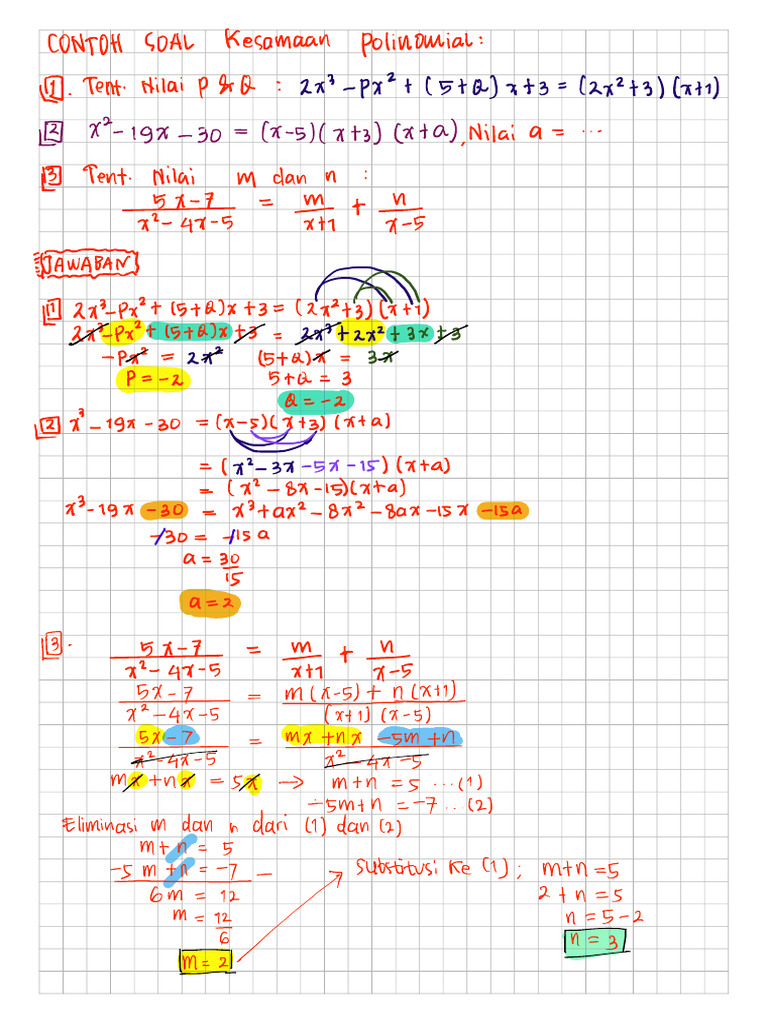 CONTOH SOAL Kesamaan Polinomial:
1. Tent. Nilai P & Q : 2x³ - Px² + (5+Q)x+3 = (2x²+3)(x+1)
2 x² - 19x - 30 = (x-5)(x+3)(x+a), Nilai a = ...
3 Tent. Nilai m dan n :
(5x-7)/(x²-4x-5) = m/(x+1) + n/(x-5)
JAWABAN
1 2x³-Px²+(5+Q)x+3 = (2x²+3)(x+1)
2x³-Px²+(5+Q)x+3 = 2x³+2x²+3x+3
-Px² = 2x² (5+Q)x = 3x
P = -2 5+Q = 3
Q = -2
2 x³-19x-30 = (x-5)(x+3)(x+a)
= (x²-3x-5x-15)(x+a)
= (x²-8x-15)(x+a)
x³-19x-30 = x³+ax²-8x²-8ax-15x-15a
-30 = -15a
a = 30/15
a = 2
3. (5x-7)/(x²-4x-5) = m/(x+1) + n/(x-5)
(5x-7)/(x²-4x-5) = (m(x-5)+n(x+1))/((x+1)(x-5))
(5x-7)/(x²-4x-5) = (mx+nx-5m+n)/(x²-4x-5)
mx+nx = 5x → m+n = 5 ...(1)
-5m+n = -7 ..(2)
Eliminasi m dan n dari (1) dan (2)
m+n = 5
-5m+n = -7 -
6m = 12
m = 12/6
m = 2
→ Substitusi ke (1); m+n = 5
2+n = 5
n = 5-2
n = 3